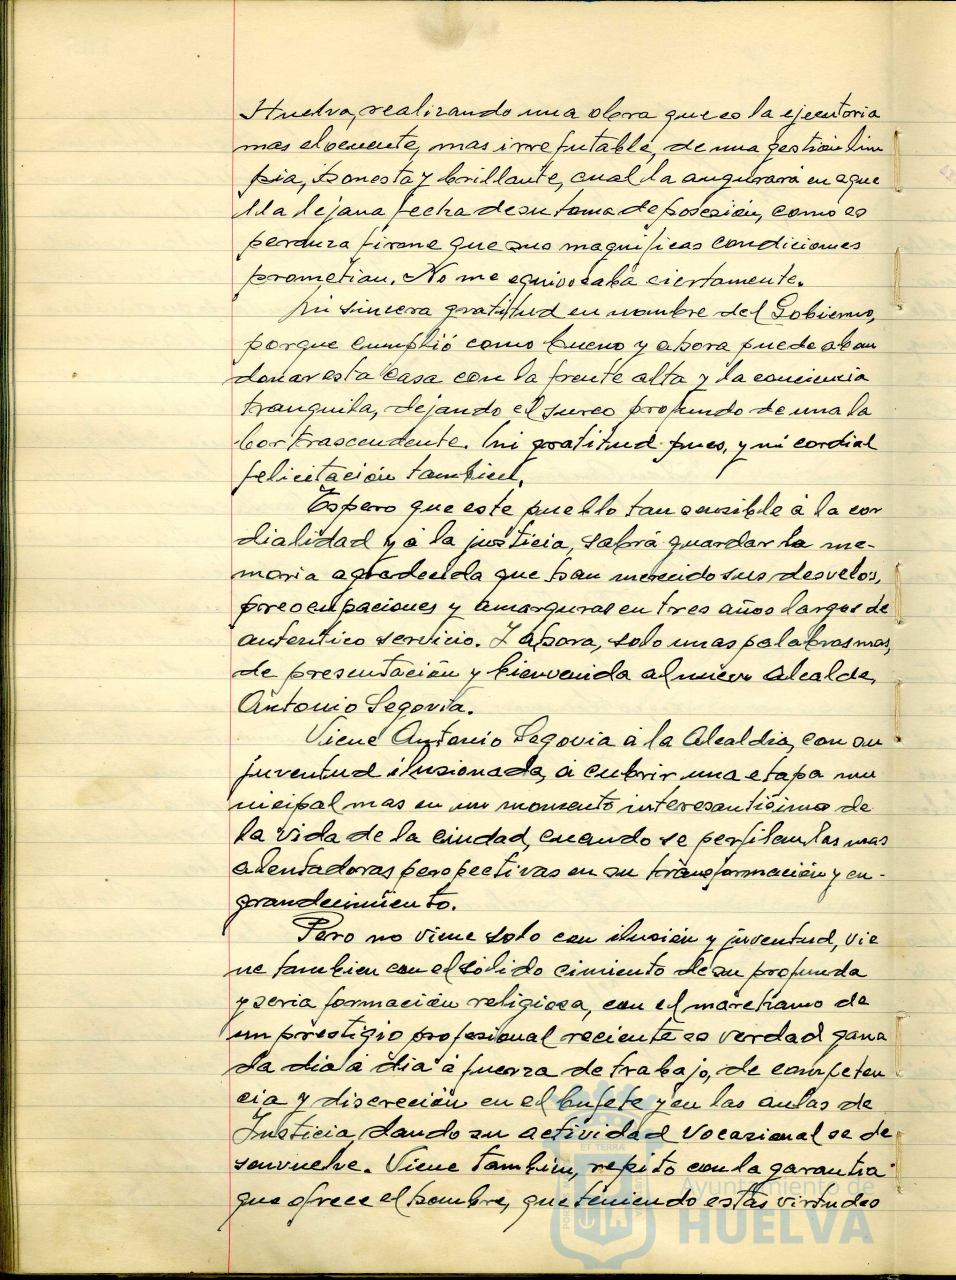 Huelva, realizando una obra que es la ejecutoria
mas elocuente, mas irrefutable, de una gestión lim
pia, honesta y brillante, cual la augurará en aque
lla lejana fecha de su toma de posesión, como es
peranza firme que sus magnificas condiciones
prometian. No me equivocaba ciertamente.
Mi sincera gratitud en nombre del Gobierno,
porque cumplió como bueno y ahora puede aban
donar esta casa con la frente alta y la conciencia
tranquila, dejando el surco profundo de una la
bor trascendente. Mi gratitud pues, y mi cordial
felicitación tambien.
Espero que este pueblo tan sensible á la cor
dialidad y á la justicia, sabrá guardar la me-
moria agradecida que han merecido sus desvelos,
preocupaciones y amarguras en tres años largos de
autentico servicio. Y ahora, solo unas palabras mas,
de presentación y bienvenida al nuevo Alcalde,
Antonio Segovia.
Viene Antonio Segovia á la Alcaldia, con su
juventud ilusionada, á cubrir una etapa mu
nicipal mas en un momento interesantisimo de
la vida de la ciudad, cuando se perfilan las mas
alentadoras perspectivas en su transformación y en-
grandecimiento.
Pero no viene solo con ilusión y juventud, vie
ne tambien con el sólido cimiento de su profunda
y seria formación religiosa, con el marchamo de
un prestigio profesional reciente es verdad gana
da dia á dia á fuerza de trabajo, de competen
cia y discreción en el bufete y en las aulas de
Justicia, dando su actividad vocacional se de
senvuelve. Viene tambien, repito con la garantia
que ofrece el hombre, que teniendo estas virtudes
Ayuntamiento de
HUELVA